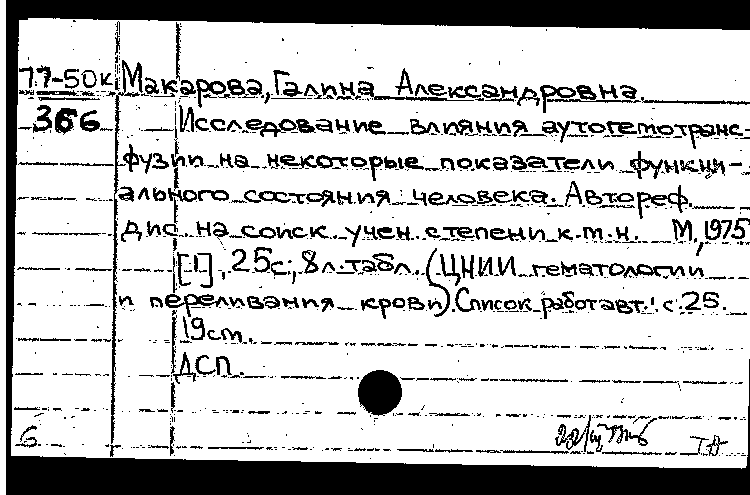 77-50к Макарова, Галина Александровна.
366 Исследование влияния аутогемотранс-
фузии на некоторые показатели функци-
ального состояния человека. Автореф.
дис. на соиск. учен. степени к.т.н. М, 1975
[1], 25с; 8л.табл. (ЦНИИ гематологии
и переливания крови). Список работ авт.: с.25.
19см.
ДСП.
6